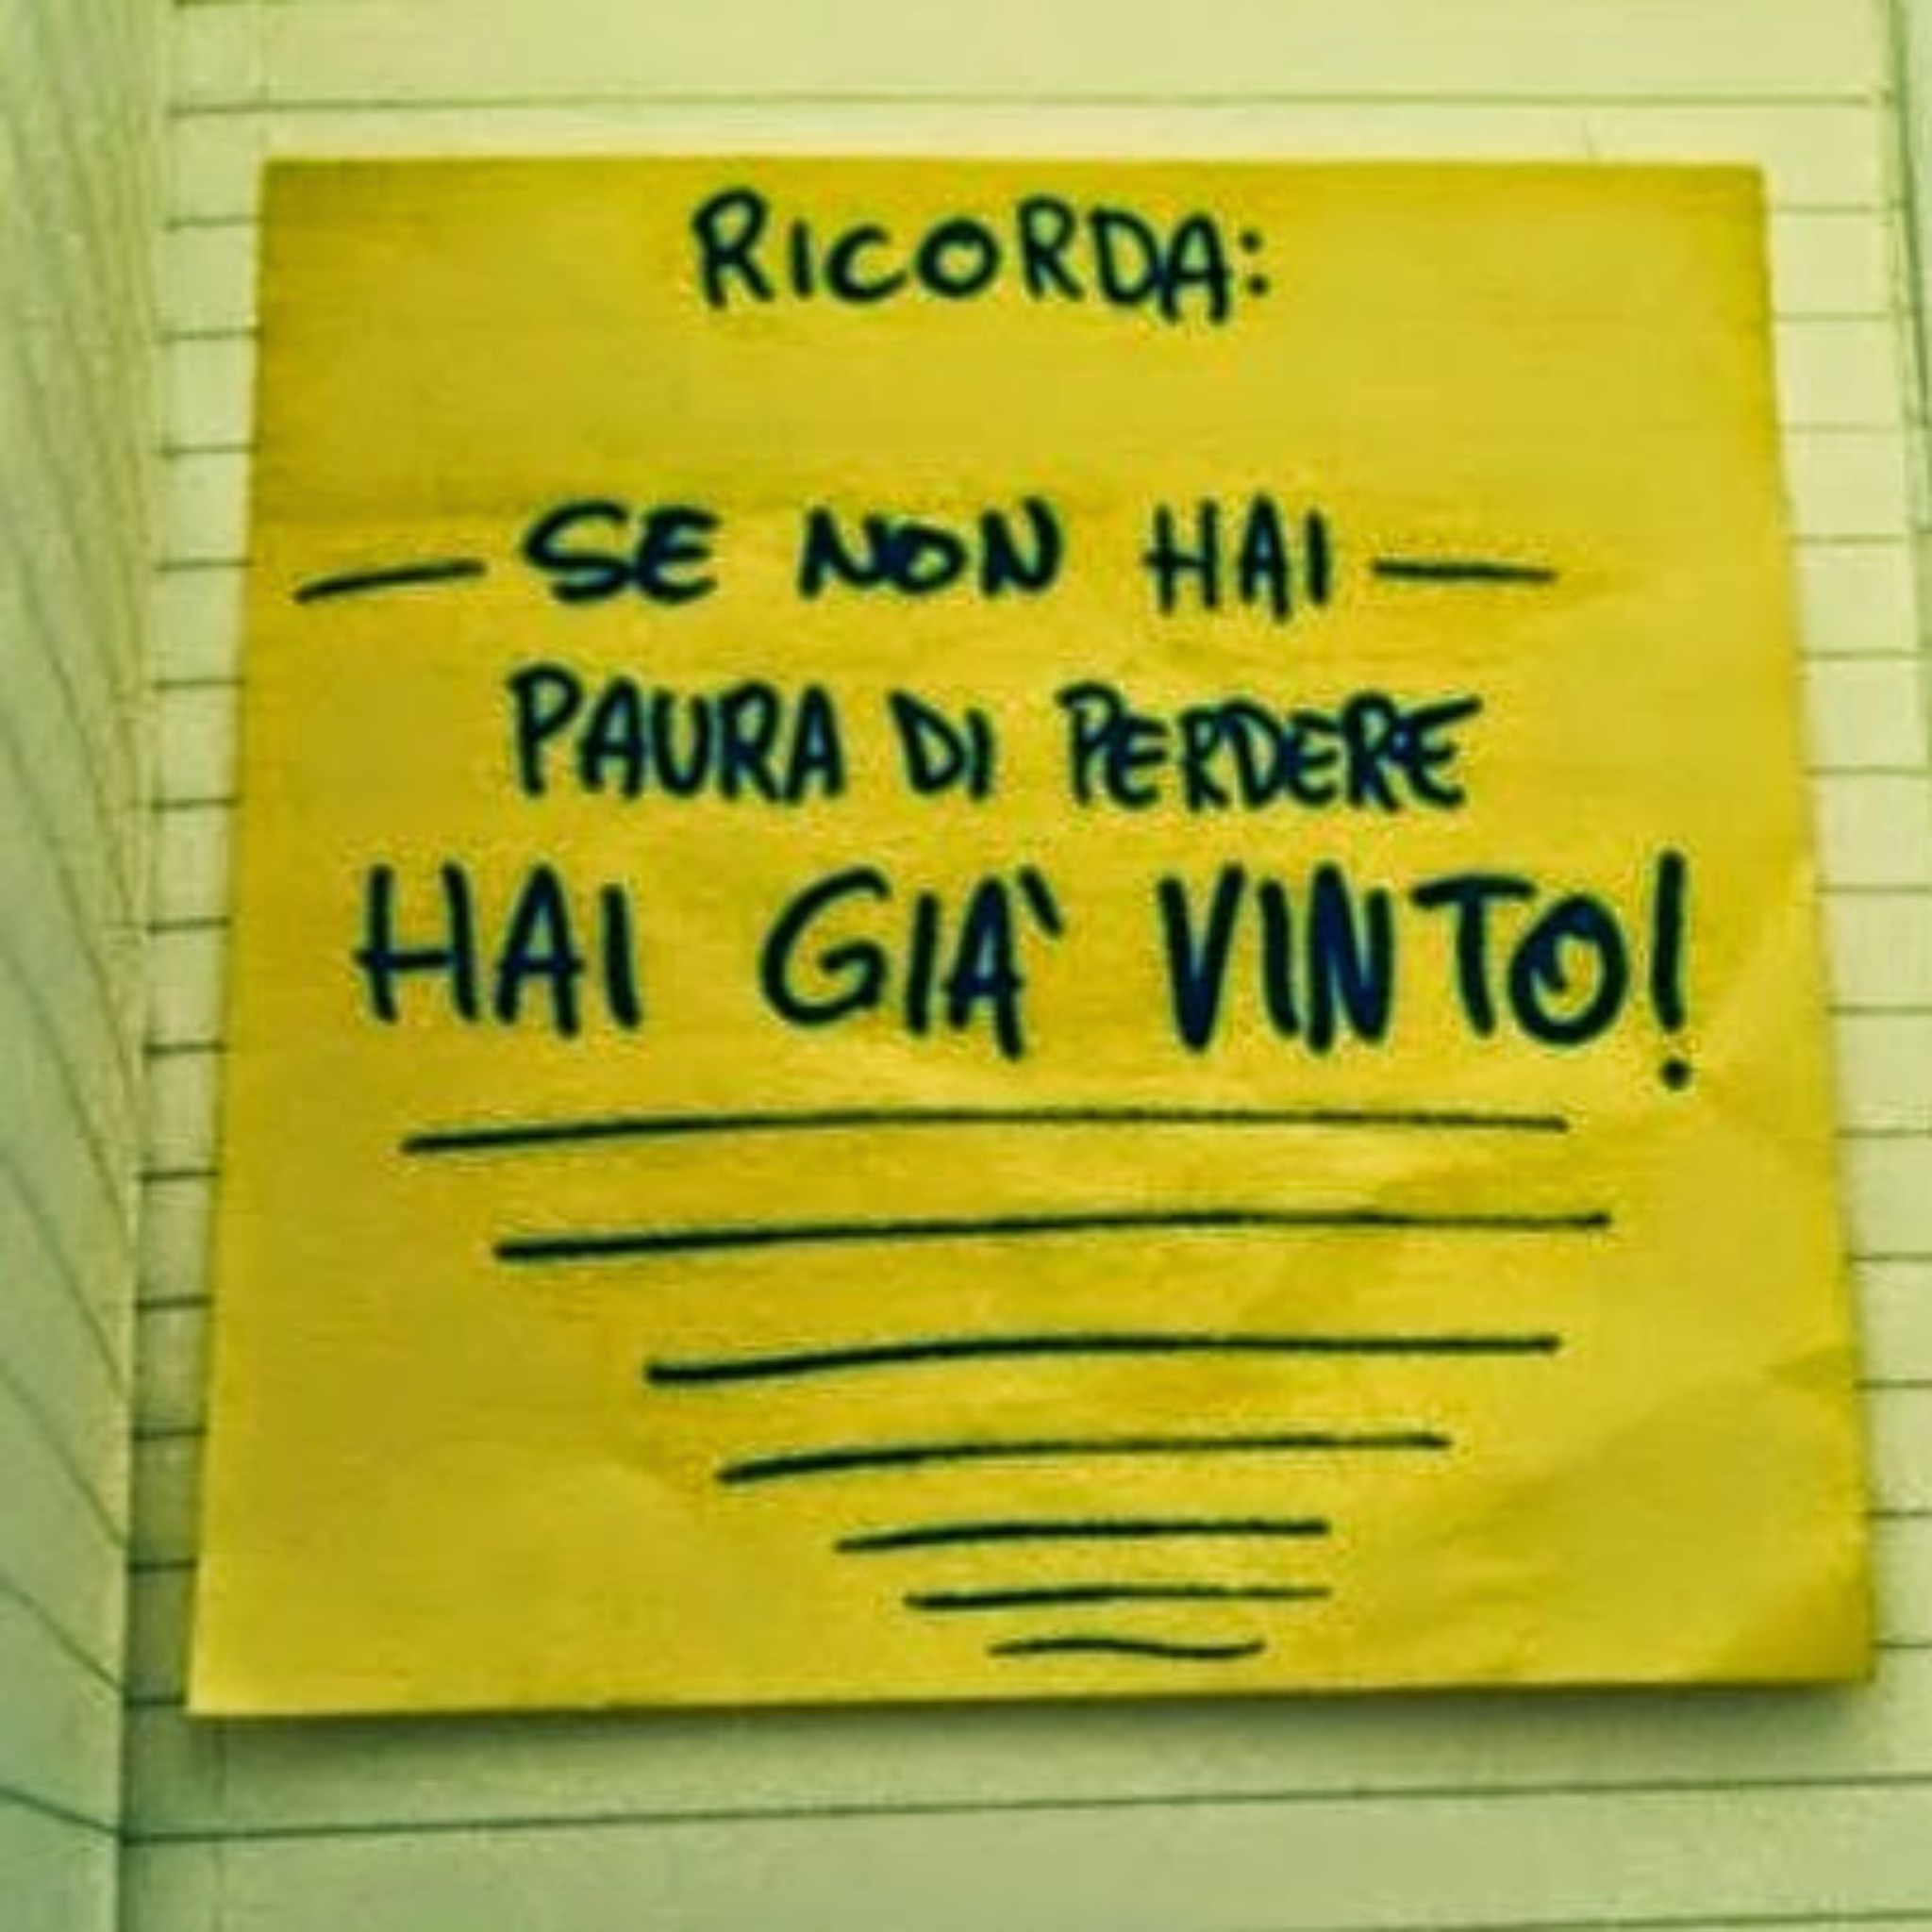 RICORDA:
— SE NON HAI —
PAURA DI PERDERE
HAI GIA' VINTO!